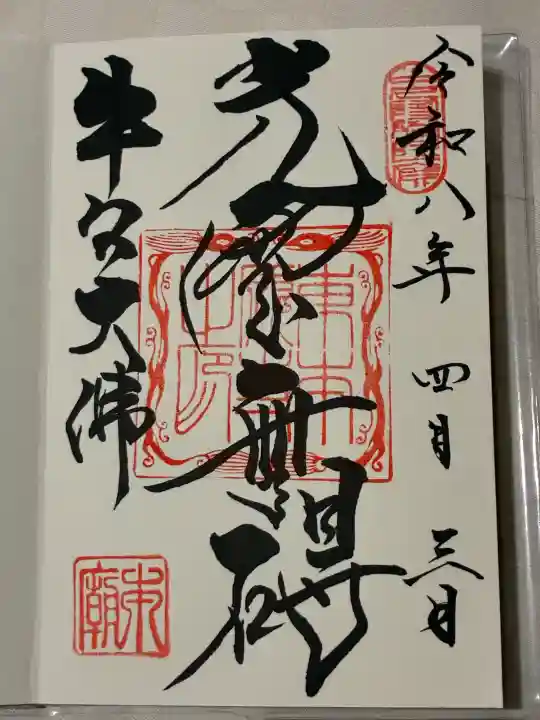 令和八年 四月 三日
光雲無碍
牛久大佛